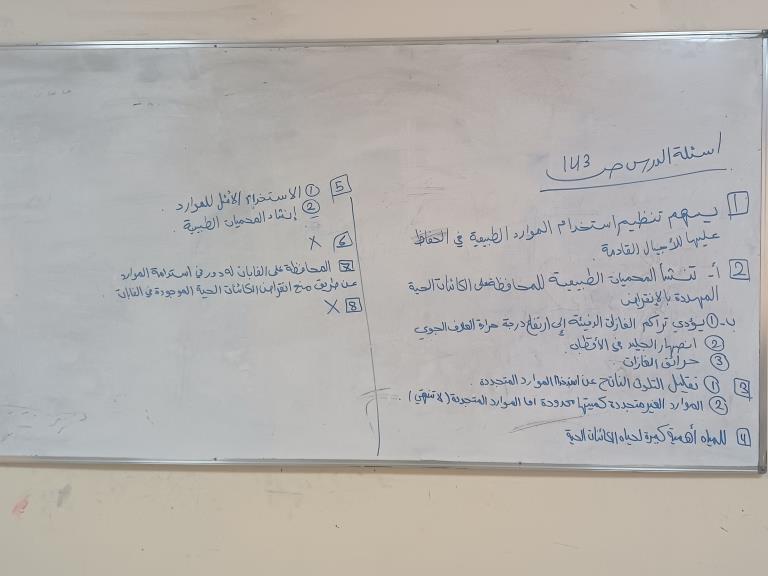 اسئلة الدرس ص ١٤٣
1 يسهم تنظيم استخدام الموارد الطبيعية في الحفاظ
عليها للأجيال القادمة
2 أ- تنشأ المحميات الطبيعية للمحافظة على الكائنات الحية
المهددة بالإنقراض
ب- ① يؤدي تراكم الغازات الدفيئة إلى ارتفاع درجة حرارة الغلاف الجوي
② انصهار الجليد في الأقطاب
③ حرائق الغابات
3 ① تقليل التلوث الناتج عن استخدام الموارد المتجددة
② الموارد الغير متجددة كميتها محدودة اما الموارد المتجددة (لا تنتهي).
4 للمياه أهمية كبيرة لحياه الكائنات الحية
5 ① الاستخدام الأمثل للموارد
② إنشاء المحميات الطبيعية.
6 X
7 المحافظة على الغابات له دور في استدامة الموارد
عن طريق منع انقراض الكائنات الحية الموجودة في الغابات
8 X